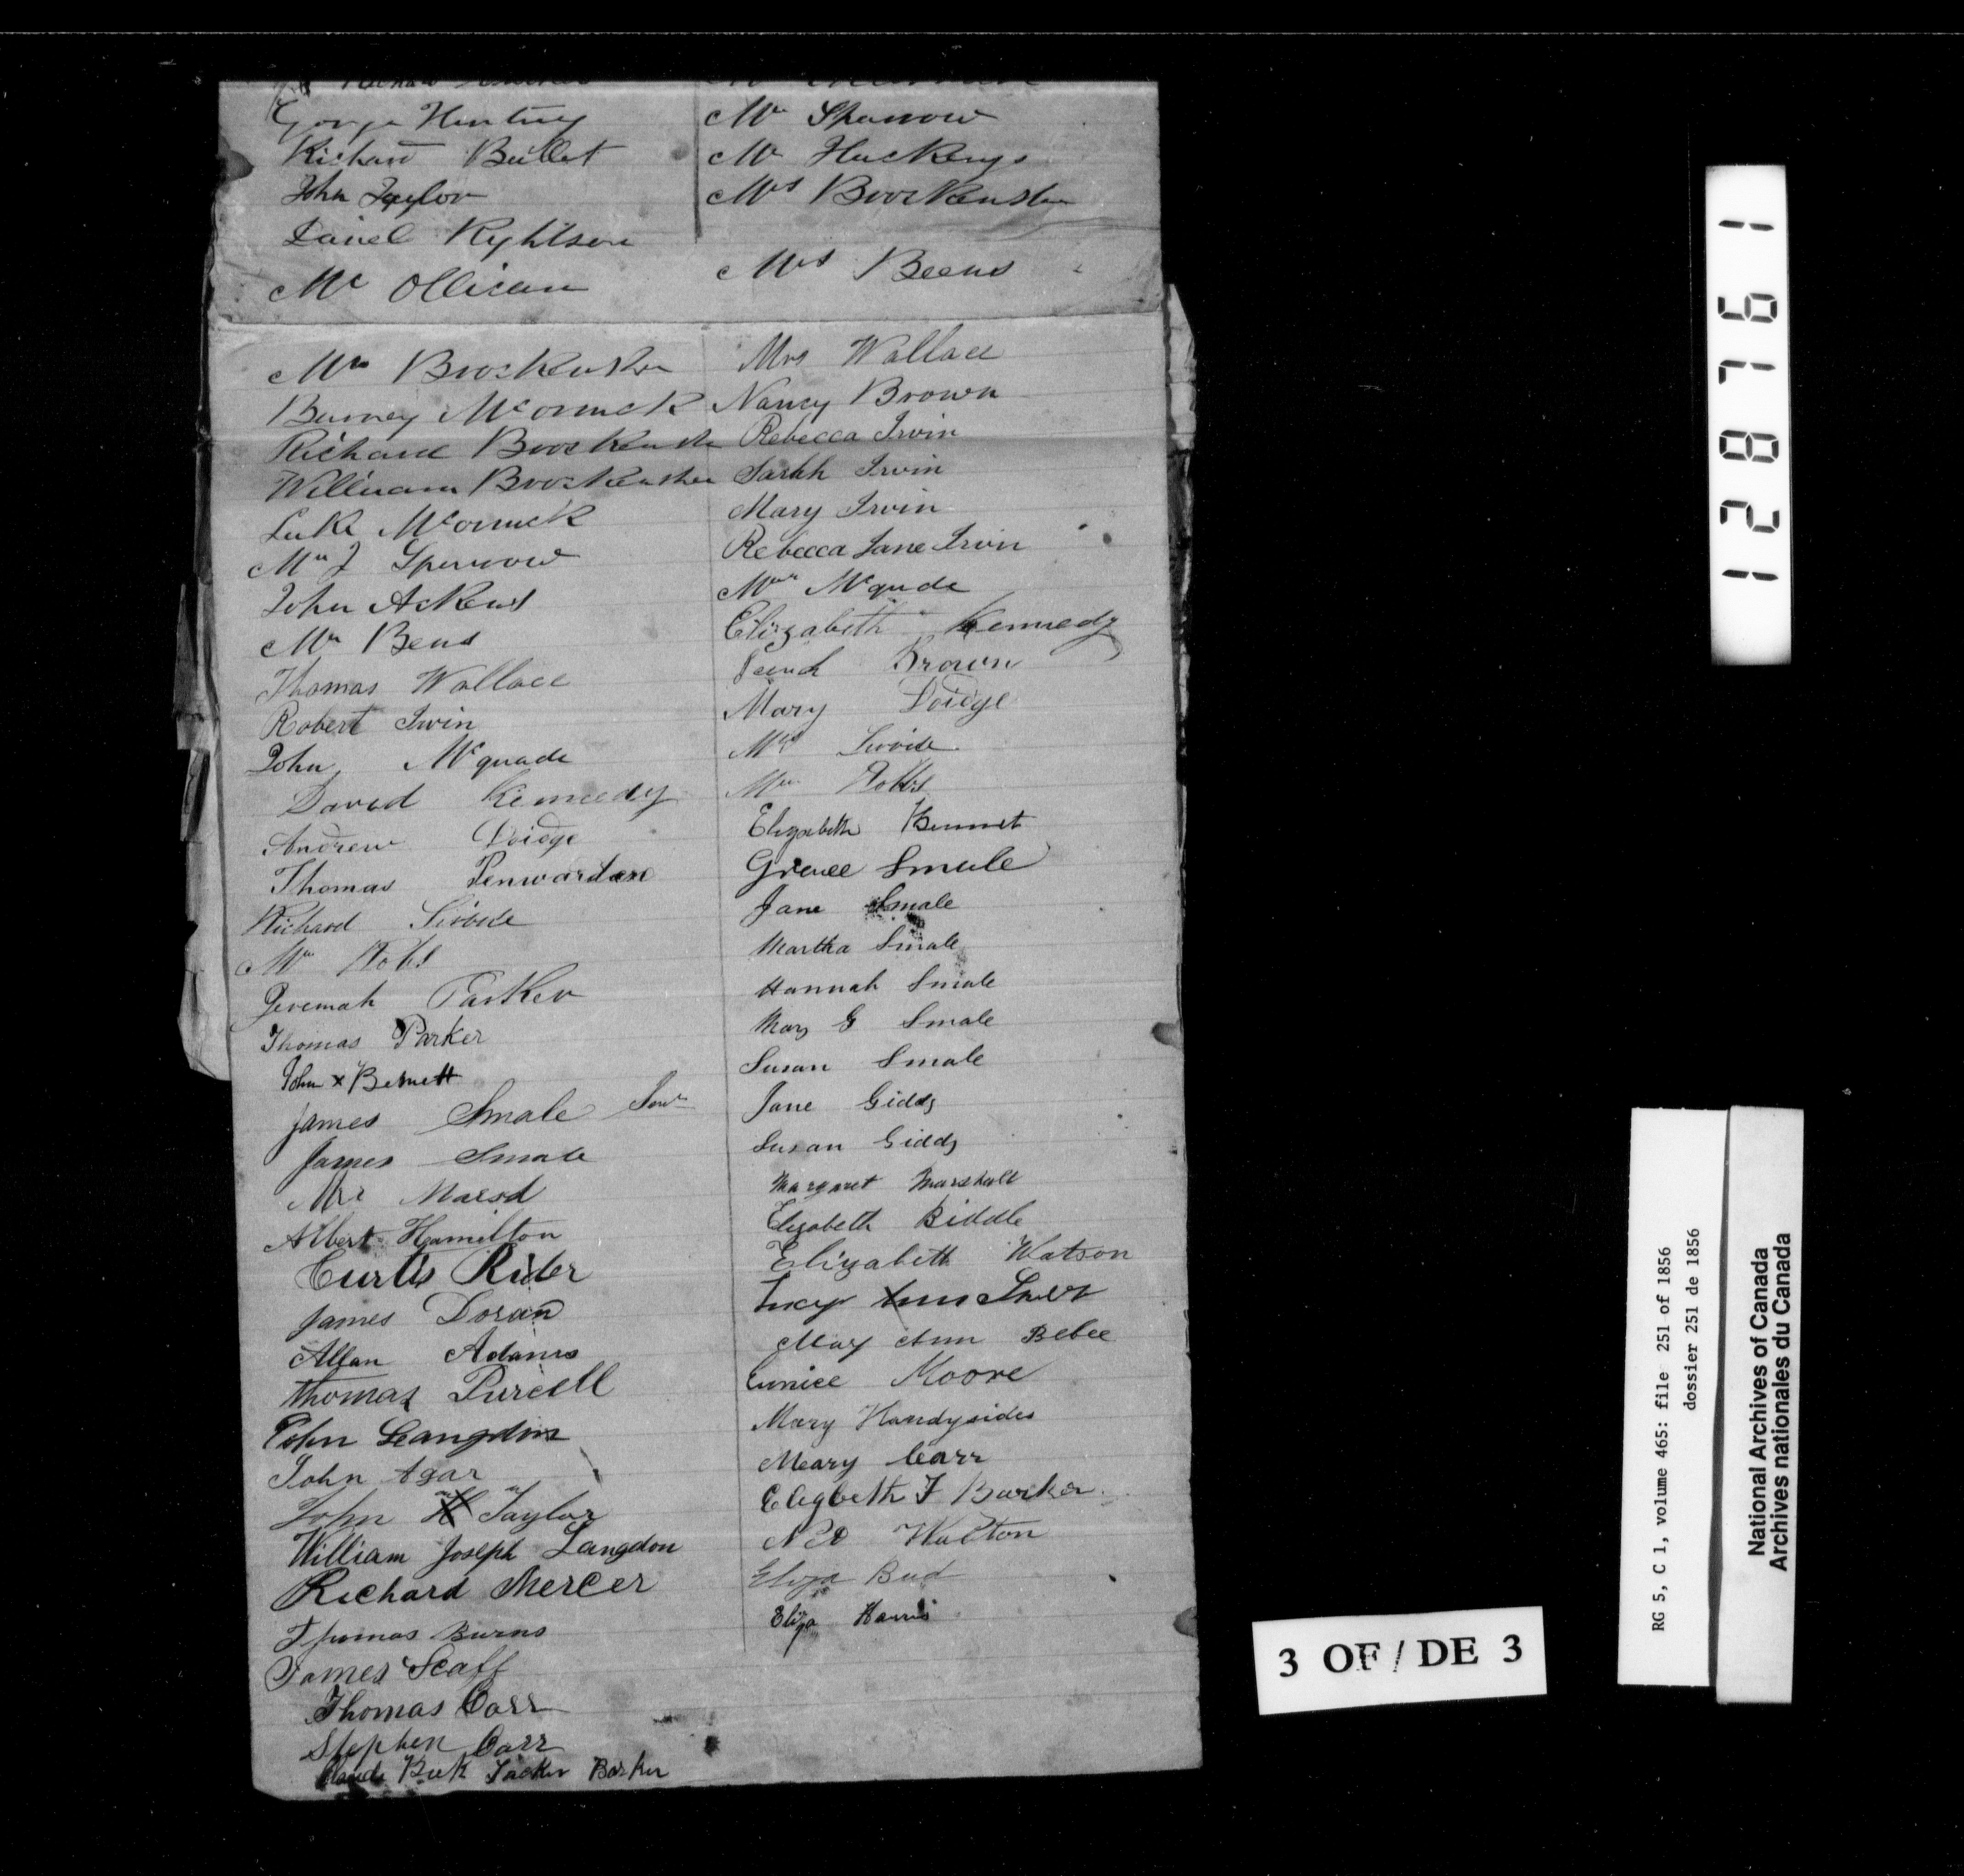 George Hunting
Richard Bullet
John Taylor
Daniel Rightson
Mr Ollican
Mr Brockenshe
Barney McCormick
Richard Brockenshe
William Brockensher
Luke McCormick
Mr J Sparrow
John Ackens
Mr Bens
Thomas Wallace
Robert Irvin
John McQuade
David Kennedy
Andrew Doidge
Thomas Penwarden
Richard
Mr Hobs
Jeremah Parker
Thomas Parker
John x Bennett
James Smale Senr
James Smale
Mr
Albert Hamilton
Curtis Rider
James Doran
Allan Adams
Thomas Purcell
John Langdon
John Agar
John X Taylor
William Joseph Langdon
Richard Mercer
Thomas Burns
James Scaff
Thomas Carr
Stephen Carr
Parker
Mr Sparrow
Mr Huckings
Mrs Brockenshe
Mrs Beens
Mrs Wallace
Nancy Brown
Rebecca Irvin
Sarah Irvin
Mary Irvin
Rebecca Jane Irvin
Mrs Mcqude
Elizabeth Kennedy
Brown
Mary Doidge
Mrs
Mrs Hobbs
Elizabeth Bennet
Grace Smale
Jane Smale
Martha Smale
Hannah Smale
Mary G Smale
Susan Smale
Jane Giddy
Susan Giddy
Margaret Marshall
Elizabeth Biddle
Elizabeth Watson
Lucy Ann
Mary Ann Bebee
Eunice Moore
Mary Handysides
Meary Carr
Elizbeth J Barker
Walton
Eliza Bud
Eliza Harris
128761
3 OF/DE 3
RG 5, C 1, volume 465: file 251 of 1856
dossier 251 de 1856
National Archives of Canada
Archives nationales du Canada